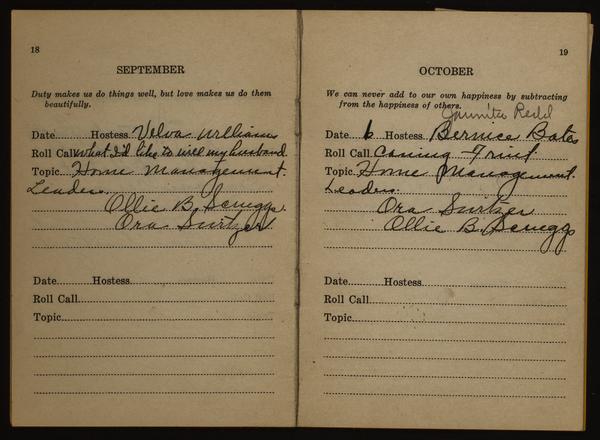 18
SEPTEMBER
Duty makes us do things well, but love makes us do them
beautifully.
Date Hostess Velva Williams
Roll Call What I'd like to my husband
Topic Home Management.
Leaders.
Ollie B. Scruggs.
Ora Switzer
Date Hostess
Roll Call
Topic
19
OCTOBER
We can never add to our own happiness by subtracting
from the happiness of others.
Juanita Redd
Date 6 Hostess Bernice Bates
Roll Call Caning Fruit
Topic Home Management.
Leaders.
Ora Switzer
Ollie B. Scruggs
Date Hostess
Roll Call
Topic